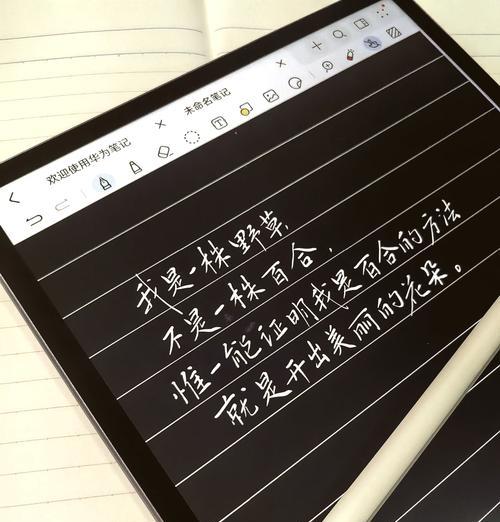 欢迎使用华为笔记
未命名笔记
我是一株野草
不是一株百合，
惟一能证明我是百合的方法
就是开出美丽的花朵。